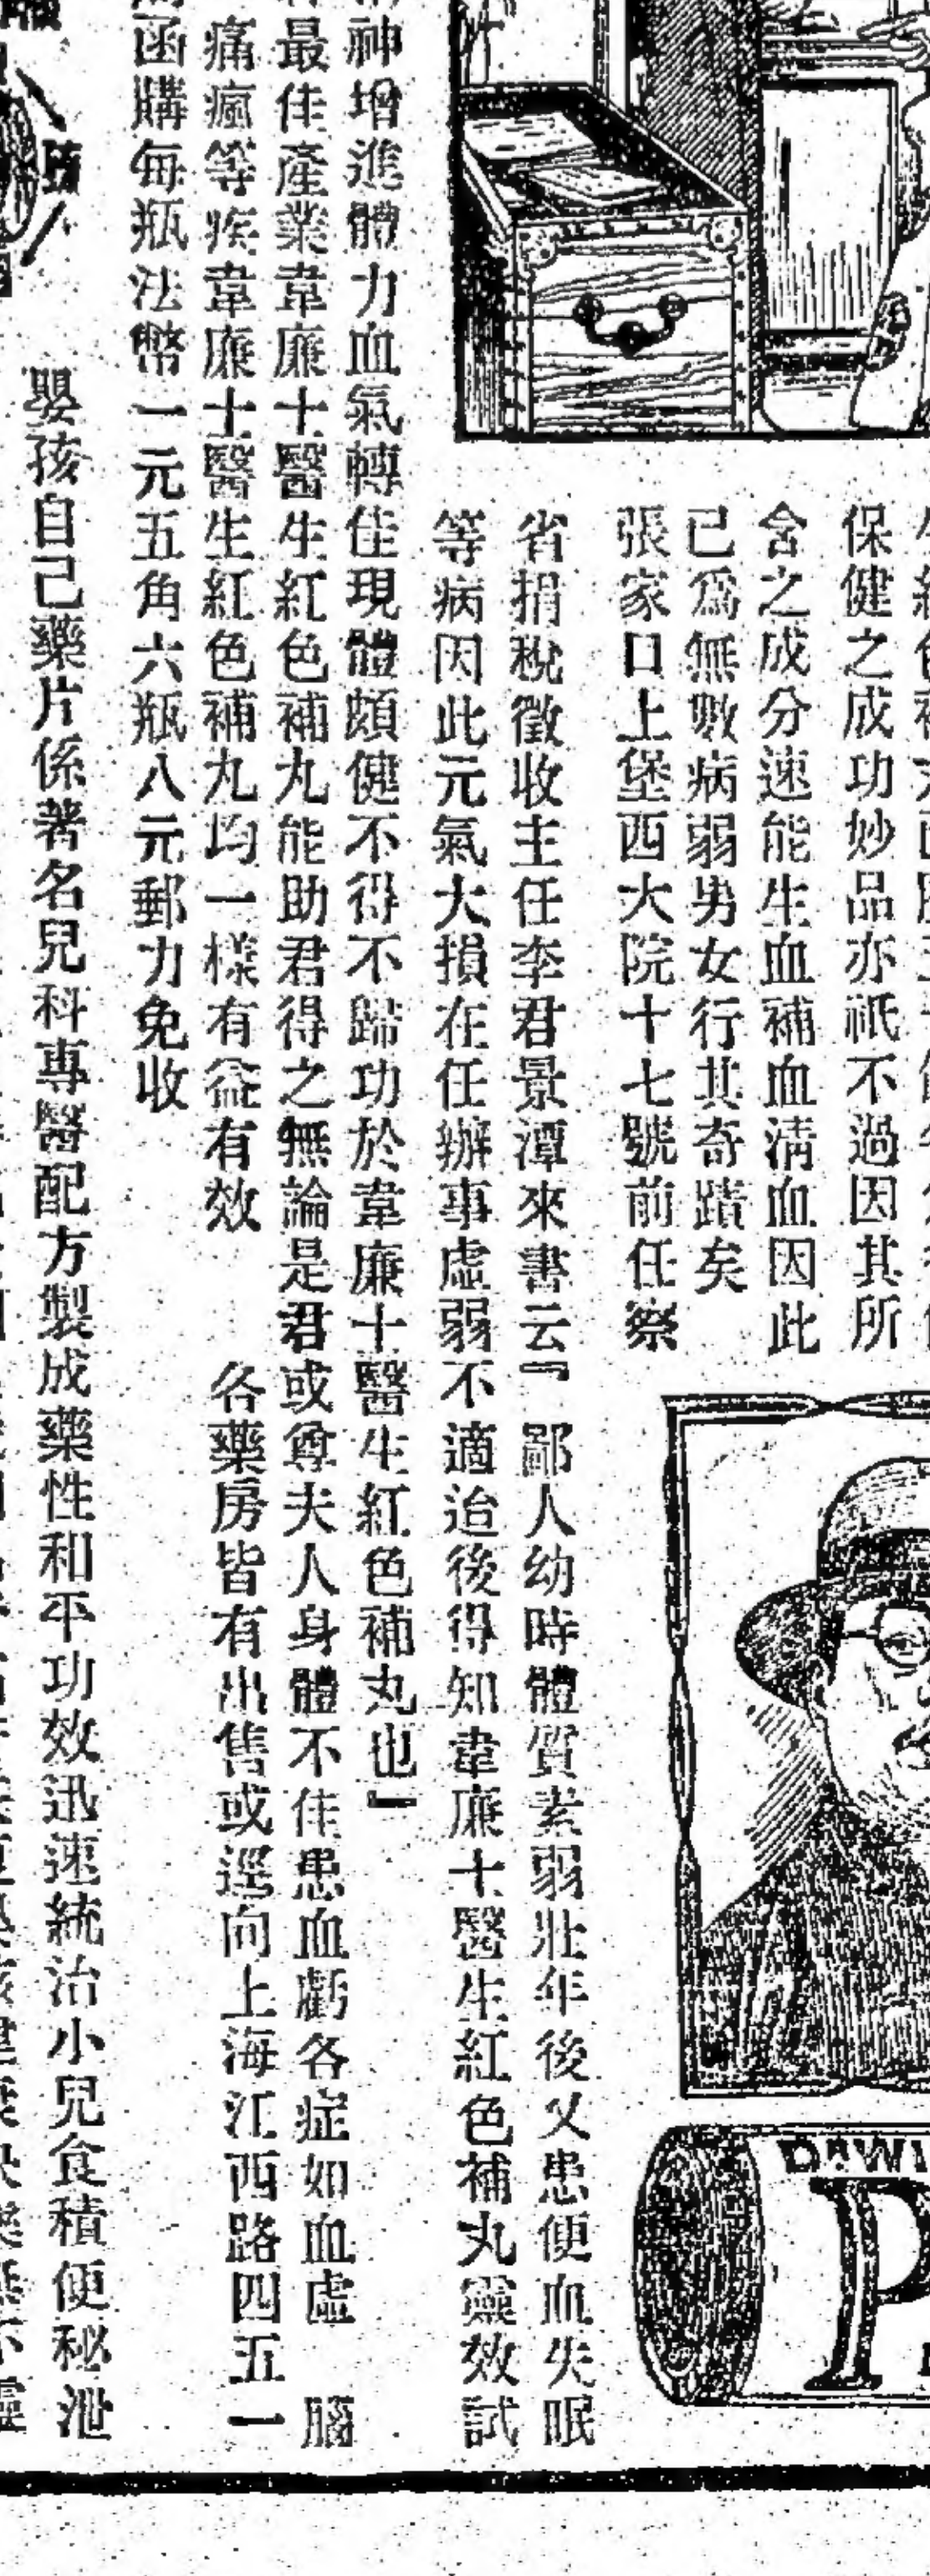 保健之成功妙品亦祇不過因其所
含之成分速能生血補血淸血因此
已爲無數病弱男女行其奇蹟矣
張家口上堡西大院十七號前任察
省捐稅徵收主任李君景潭來書云『鄙人幼時體質素弱壯年後又患便血失眠
等病因此元氣大損在任辦事虛弱不適迨後得知韋廉士醫生紅色補丸靈效試
神增進體力血氣轉佳現體頗健不得不歸功於韋廉士醫生紅色補丸也』
最佳產業韋廉士醫生紅色補丸能助君得之無論是君或尊夫人身體不佳患血虧各症如血虛 腦
痛瘋等疾韋廉士醫生紅色補丸均一樣有益有效 各藥房皆有出售或逕向上海江西路四五一
函購每瓶法幣一元五角六瓶八元郵力免收
嬰孩自己藥片係著名兒科專醫配方製成藥性和平功效迅速統治小兒食積便秘泄
DR WI
P